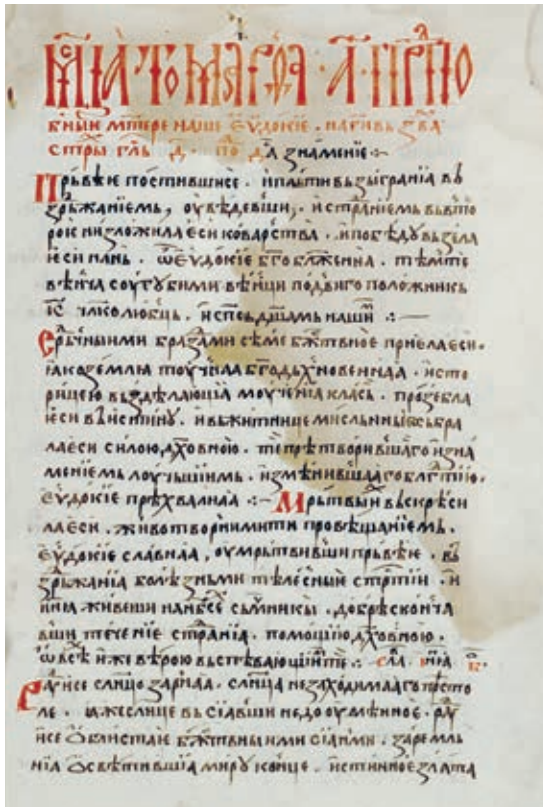 М҃ЦА ТО МАРТА · А҃ · ПРПО
бныѥ мт҃ере наше Еѵдокіе . на г҃и въꙁва
стр҃ы гла д҃ . по д҃ лꙁнаменіе :~
Прьвѣѥ постившисе . и пльти вьꙁыграніа вь
ꙁдрьжаніемь , оувѣдевши , и страніемь вьвто
роѥ ниꙁложила ѥси коварьства . и побѣду вьꙁела
ѥси нань . ѿ Еѵдокіе б҃гоблаженна . тѣмже
вѣнча соугубими вѣнци подвиго положникь
І҃С чл҃колюбць . и спсь дш҃амь нашимь :~
Срьдчними браꙁдами сѣме бжтвное приела ѥси .
іако ꙁемлꙗ тоучна бг҃одьхновеннаа . исто
рицею вьꙁдѣлающіа моученіа клась . проꙁебла
ѥси вьистину . и вь житнице мисльниѥ сьбра
ла ѥси силою дх҃овною . те прѣтворившаго иꙁна
меніемь лоучьшимь . иꙁмѣнившааго блг҃тію .
Еѵдокіе прѣхвалнаа :~ Мрьтвыи вьскрѣси
ла ѥси . животворнимити провѣщаніемь .
Еѵдокіе славнаа , оумрьтвивши прьвѣѥ . вь
ꙁдрьжаніа болѣꙁньми тѣлесныѥ стрти . и
нн҃ꙗ живеши на нб҃се сь мч҃никы . добрѣ сконча
вши теченіе страніа . помощію дх҃овною .
ѿ всѣ иже вѣрою вьспѣвающіи те :~ сла . и нн҃ꙗ б҃ .
Рауисе слнцо ꙁарнаа . слнца неꙁаходимааго прѣсто
ле . іаже слнце вьсіавши недооумѣнное . рау
исе облистаѥ бжтвными сіанми . ꙁаре мль
ніа ѡсвѣтившіа мироу конце . истинное ꙁлата